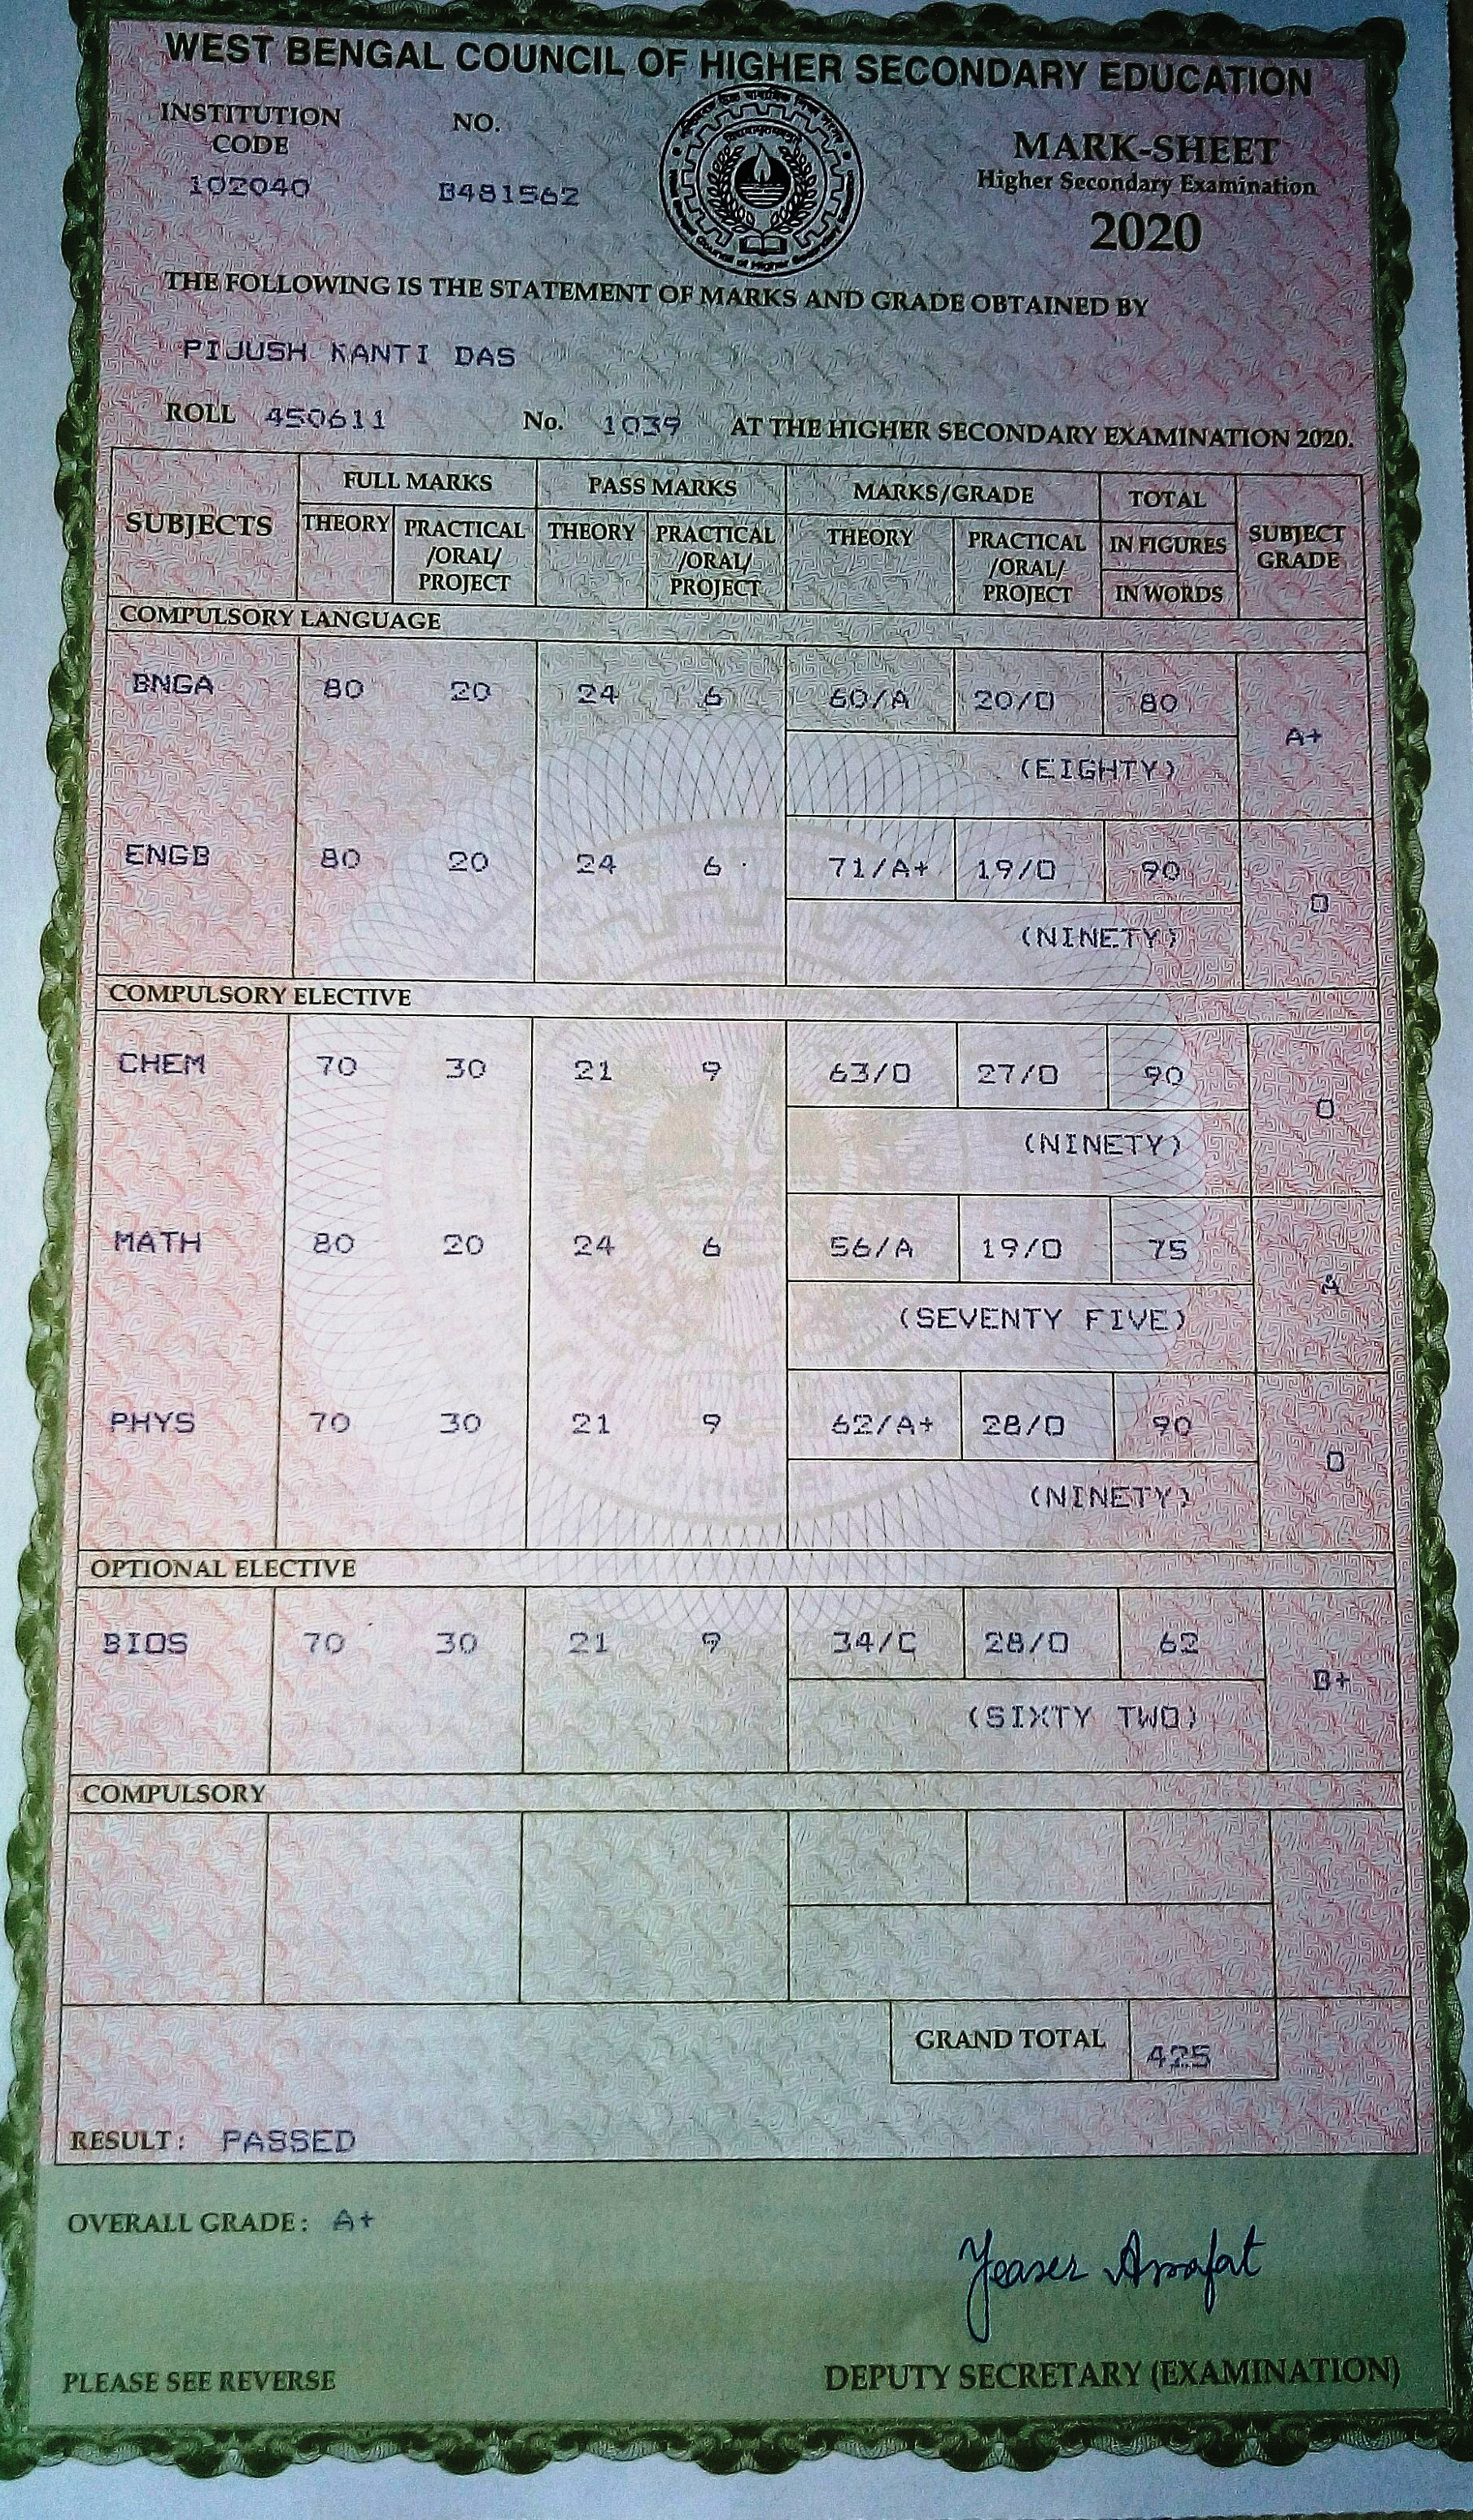 WEST BENGAL COUNCIL OF HIGHER SECONDARY EDUCATION
INSTITUTION CODE NO.
102040 B481562
MARK-SHEET
Higher Secondary Examination
2020
THE FOLLOWING IS THE STATEMENT OF MARKS AND GRADE OBTAINED BY
PIJUSH KANTI DAS
ROLL 450611 No. 1039 AT THE HIGHER SECONDARY EXAMINATION 2020.
SUBJECTS FULL MARKS PASS MARKS MARKS/GRADE TOTAL SUBJECT GRADE
THEORY PRACTICAL /ORAL/ PROJECT THEORY PRACTICAL /ORAL/ PROJECT THEORY PRACTICAL /ORAL/ PROJECT IN FIGURES
IN WORDS
COMPULSORY LANGUAGE
BNGA 80 20 24 6 60/A 20/O 80 A+
(EIGHTY)
ENGB 80 20 24 6 71/A+ 19/O 90 O
(NINETY)
COMPULSORY ELECTIVE
CHEM 70 30 21 9 63/O 27/O 90 O
(NINETY)
MATH 80 20 24 6 56/A 19/O 75 A
(SEVENTY FIVE)
PHYS 70 30 21 9 62/A+ 28/O 90 O
(NINETY)
OPTIONAL ELECTIVE
BIOS 70 30 21 9 34/C 28/O 62 B+
(SIXTY TWO)
COMPULSORY
GRAND TOTAL 425
RESULT: PASSED
OVERALL GRADE: A+
Yeaser Arrafat
PLEASE SEE REVERSE DEPUTY SECRETARY (EXAMINATION)